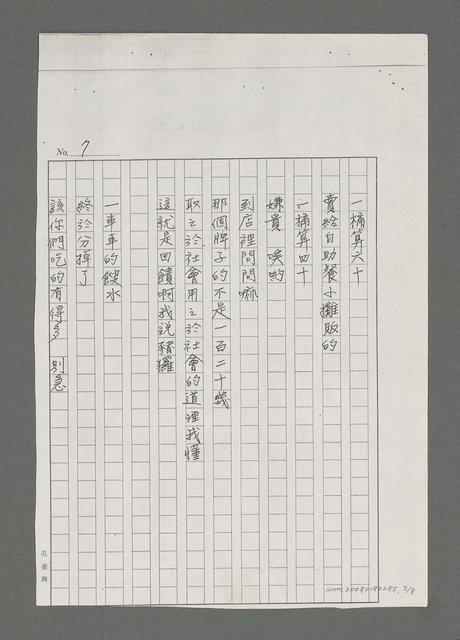 No. 7
一桶算六十
賣給自助餐小攤販的
一桶算四十
嫌貴 唉喲
到店裡問問嘛
那個牌子的不是一百二十幾
取之於社會用之於社會的道理我懂
這就是回饋啊我說豬玀
一車車的餿水
終於分掉了
該你們吃的有得多 別急
孔雀牌
NMTL20080180285, 7/8